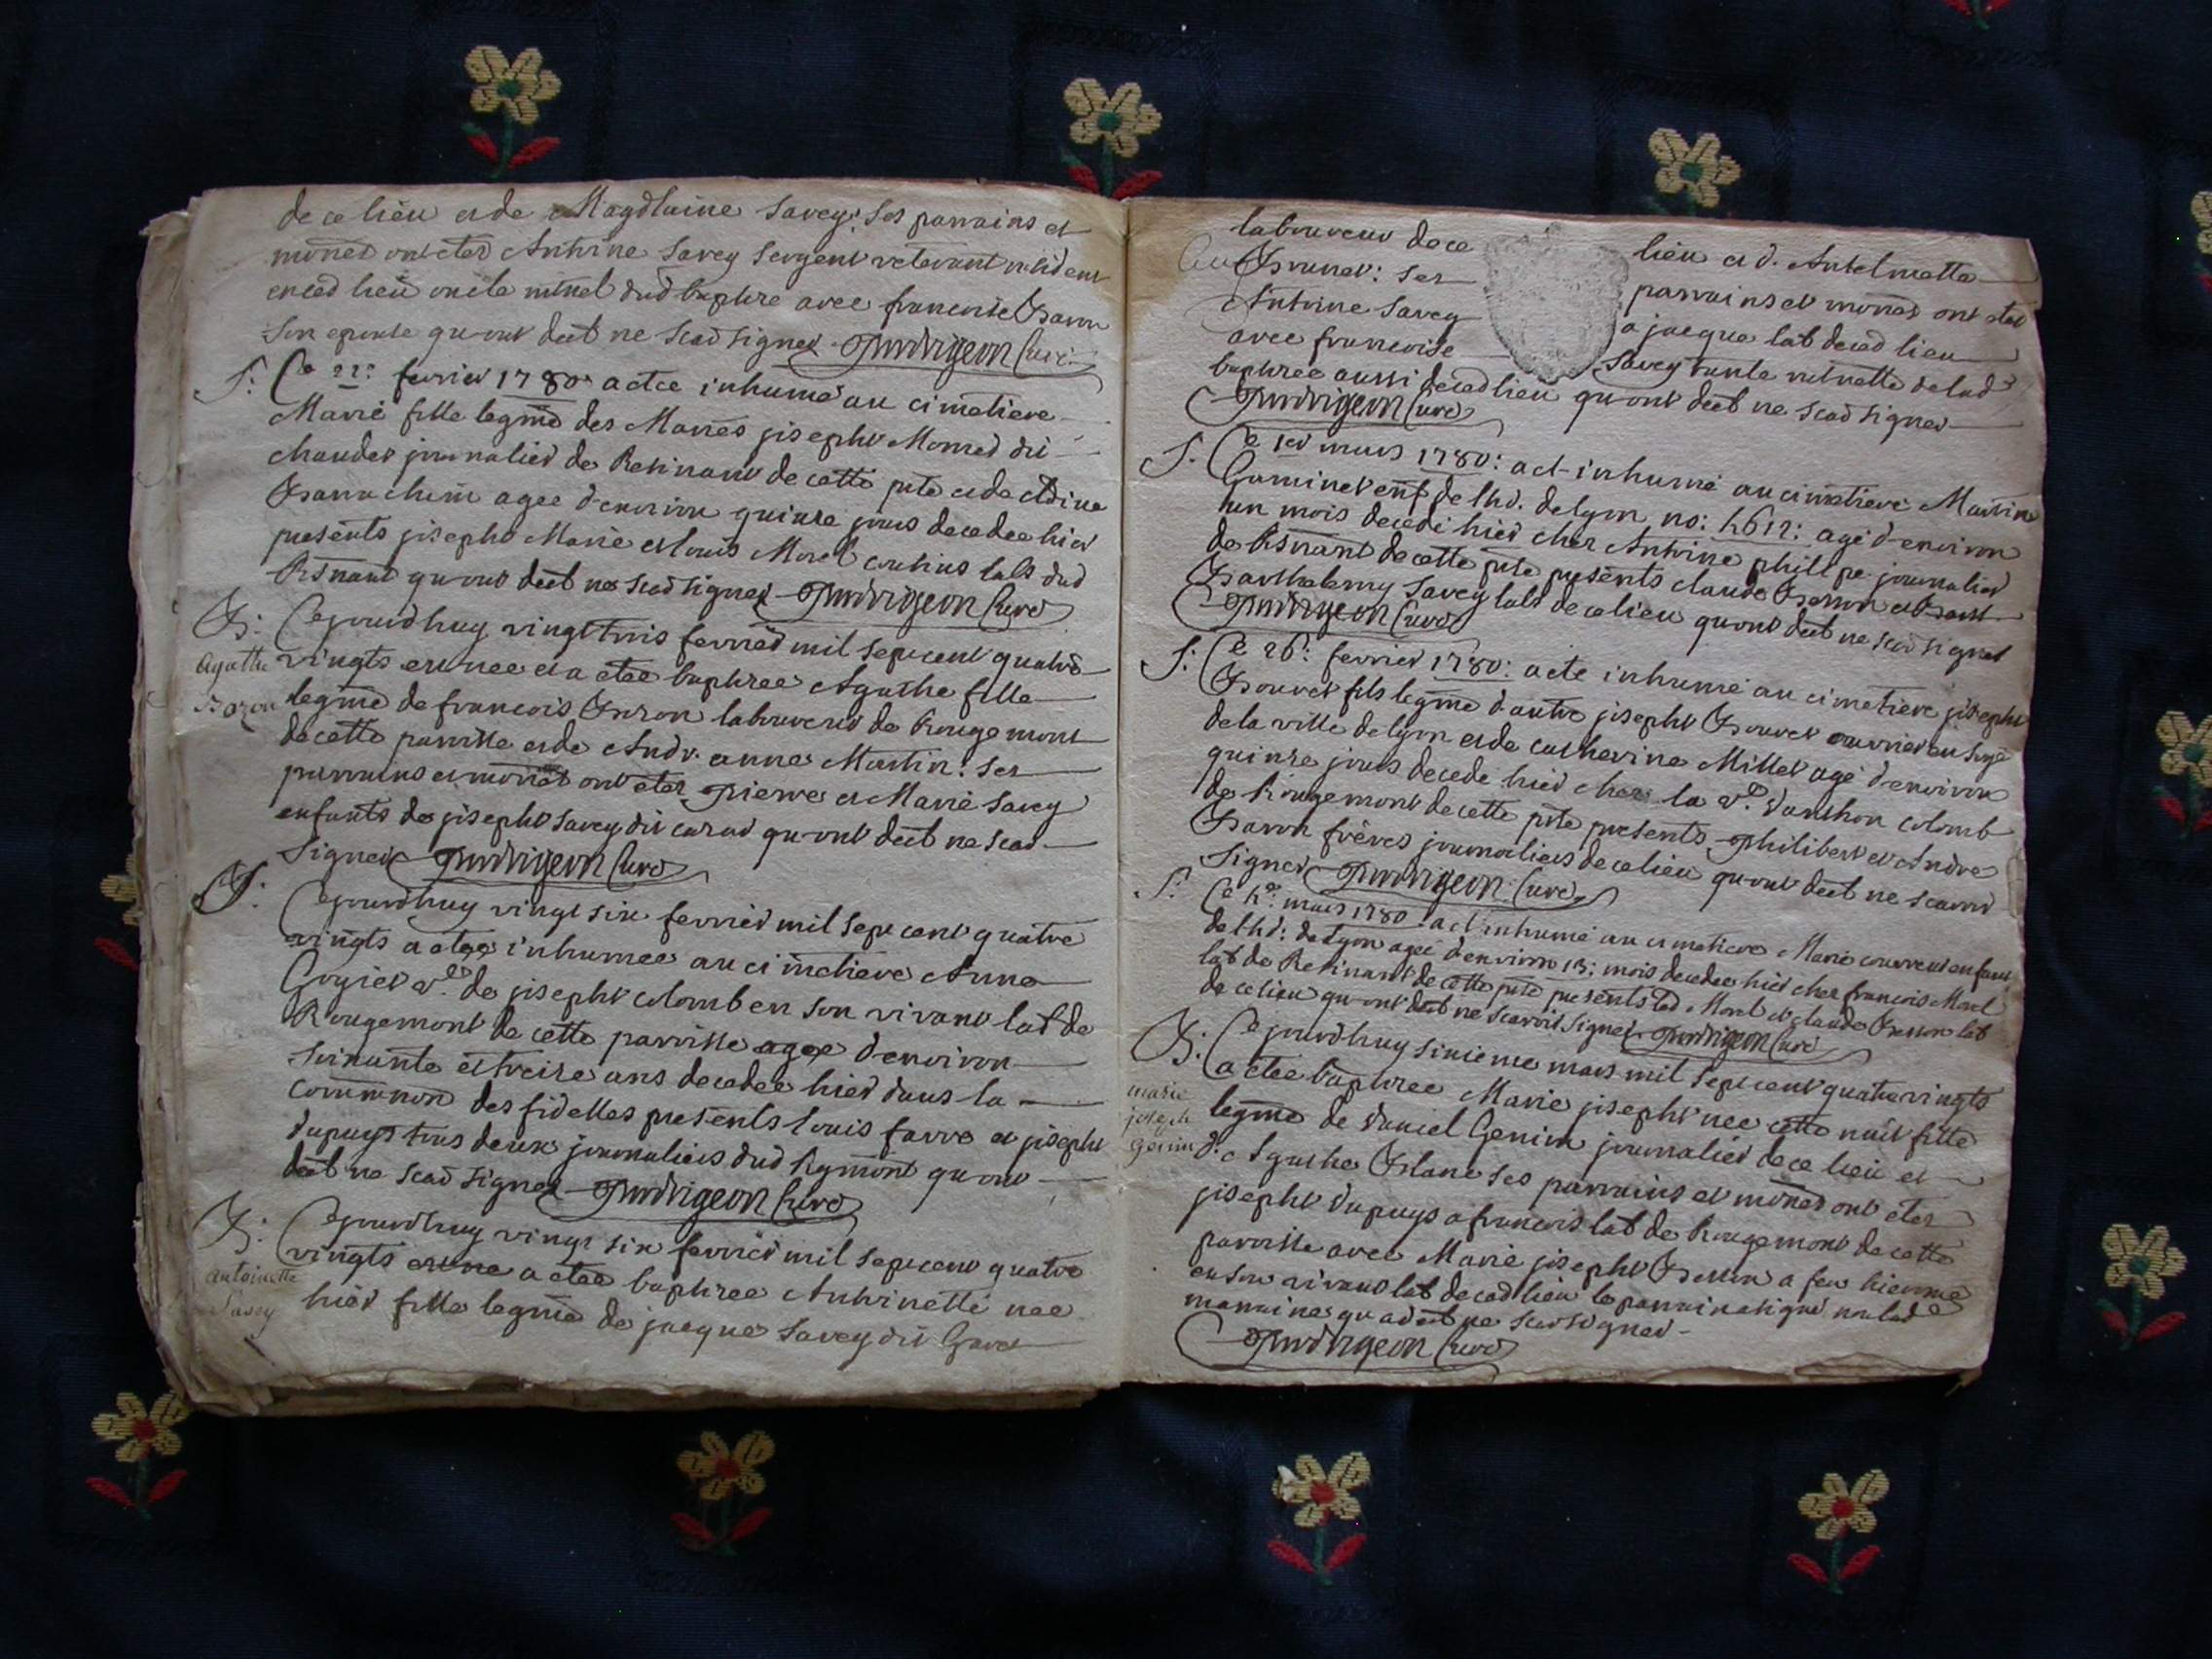 de ce lieu et de Magdlaine Savey: Ses parrains et
mones ont etes Antoine Savey Sergent veterant resident
en ced lieu oncle mtnel dud baptre avec francoise Baron
Son epouse qu ont decb ne scad signer Curé
S: Ce 22: fevrier 1780 a etee inhume au cimetiere
Marie fille legme des Maries joseph Morred dit
chaudet journalier de Resinant de cette pste et de
agee d'environ quinze jours decedee hier
presents joseph Marie et louis Morel cousins labs dud
Rsnant qu ont decb ne scad signer Curé
B: Cejourdhuy vingt trois fevrier mil sept cent quatre
Agathe
vingts est nee et a etee baptsee Agathe fille
Bozon
legme de francois Bozon laboureur de Rougemont
de cette parroisse et de Andr. anne Martin: Ses
parrains et mones ont etes Pierre et Marie Savey
enfants de joseph Savey dit qu ont decb ne scad
signer Curé
S: Cejourdhuy vingt six fevrier mil sept cent quatre
vingts a etee inhumee au cimetiere Anne
ve de joseph colomb en son vivant lab de
Rougemont de cette parroisse agee d'environ
soixante et treize ans decedee hier dans la
commnon des fidelles presents louis favre et joseph
dupuys tous deux journaliers dud Rgmont qu ont
decb ne scad signer Curé
B: Cejourdhuy vingt six fevrier mil sept cent quatre
vingts a etee baptsee Antoinette nee
antoinette
Savey
hier fille legme de jacque Savey dit
laboureur de ce lieu et d. Antelmette
Brunet: Ses parrains et mones ont etes
Antoine Savey a jacque lab de ced lieu
avec francoise Savey tante mtnelle de lad
baptsee aussi de ced lieu qu ont decb ne scad signer
Curé
S. Ce 1er mars 1780: a et inhumé au cimetiere
enft de lhd. de lyon no: agé d'environ
un mois decedé hier chez Antoine philipe journalier
de Rsnant de cette pste presents claude et
Barthelemy Savey labs de ce lieu qu ont decb ne scad signer
Curé
S: Ce 26: fevrier 1780: a ete inhumé au cimetiere joseph
Bouvet fils legme d'autre joseph Bouvet ouvrier en soye
de la ville de lyon et de catherine Millet agé d'environ
quinze jours decedé hier chez la ve d'anthon colomb
de Rougemont de cette pste presents Philibert et Andre
Baron frères journaliers de ce lieu qu ont decb ne scavoir
signer Curé
S: Ce mars 1780 a et inhumé au cimetiere Marie enfant
de lhd: de lyon agee d'environ mois decedee hier chez francois Morel
lab de Resinant de cette pste presents led Morel et claude lab
de ce lieu qu ont decb ne scavoir signer Curé
B: Cejourdhuy sixieme mars mil sept cent quatre vingts
a etee baptsee Marie joseph nee cette nuit fille
marie
joseph
Genin
legme de daniel Genin journalier de ce lieu et
d. Agathe Blanc ses parrains et mones ont etes
joseph dupuys a francois lab de Rougemont de cette
parroisse avec Marie joseph a feu
en son vivant lab de ced lieu le parrain a signé non lad
marraine qu a decb ne scad signer
Curé